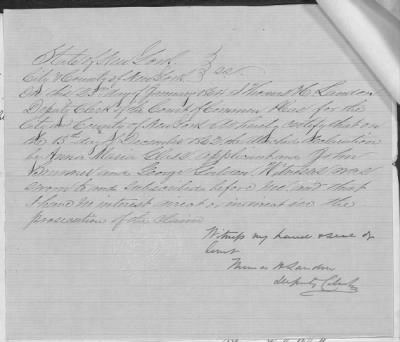 State of New York
City & County of New York } ss.
On this 23rd day of January 1864 I Thomas H. Landon
Deputy Clerk of the Court of Common Pleas for the
City and County of New York do hereby certify that on
the 15 day of December 1863 the declaration
by Anna Maria applicant and John
and George witnesses was
sworn to and subscribed before me and that
I have no interest direct or indirect in the
prosecution of the claim
Witness my hand & seal of
Court
Thomas H Landon
Deputy Clerk